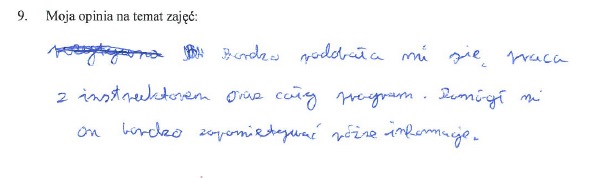 9. Moja opinia na temat zajęć:
Bardzo poddbała mi się praca
z instruktorem oraz cały program. Pomógł mi
on bardzo zapamiętywać różne informacje.